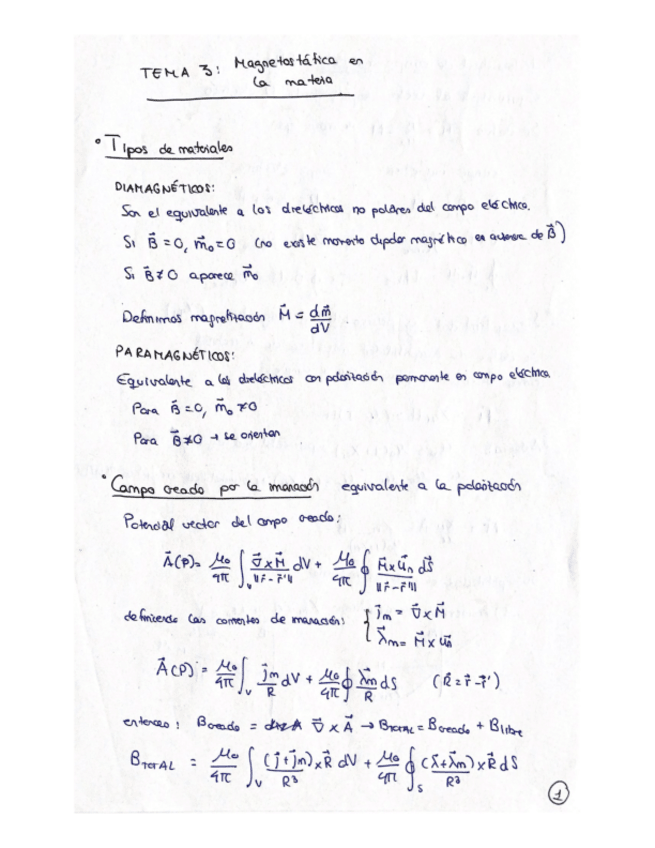 TEMA 3: Magnetostática en
la materia
• Tipos de materiales
DIAMAGNÉTICOS:
Son el equivalente a los dieléctricos no polares del campo eléctrico.
Si B⃗ = 0, m⃗₀ = 0 (no existe momento dipolar magnético en ausencia de B⃗)
Si B⃗ ≠ 0 aparece m⃗₀
Definimos magnetización M⃗ = dm⃗/dV
PARAMAGNÉTICOS:
Equivalente a los dieléctricos con polarización permanente en campo eléctrico
Para B⃗ = 0, m⃗₀ ≠ 0
Para B⃗ ≠ 0 → se orientan
• Campo creado por la imanación equivalente a la polarización
Potencial vector del campo creado:
A⃗(P) = μ₀/4π ∫_V ∇⃗×M⃗/‖r⃗-r⃗'‖ dV + μ₀/4π ∮ M⃗×u⃗n/‖r⃗-r⃗'‖ dS⃗
definiendo las corrientes de imanación: { j⃗m = ∇⃗×M⃗
λ⃗m = M⃗×u⃗n
A⃗(P) = μ₀/4π ∫_V j⃗m/R dV + μ₀/4π ∮ λ⃗m/R dS (R = r⃗-r⃗')
entonces: Bcreado = ∇⃗ × A⃗ → BTOTAL = Bcreado + Blibre
BTOTAL = μ₀/4π ∫_V (j⃗+j⃗m)×R⃗/R³ dV + μ₀/4π ∮_S (λ⃗+λ⃗m)×R⃗/R³ dS
1